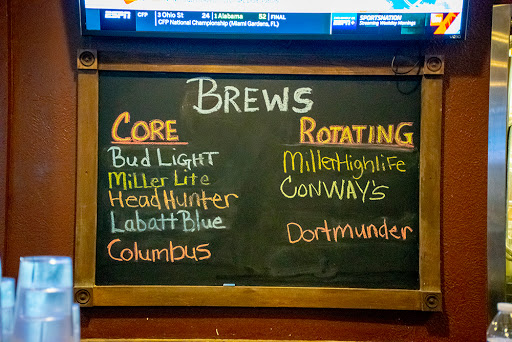 ESPN CFP 3 Ohio St 24 1 Alabama 52 FINAL SPORTSNATION
CFP National Championship (Miami Gardens, FL) Streaming Weekday Mornings
BREWS
CORE
Bud LIGHT
Miller Lite
HeadHunter
Labatt Blue
Columbus
ROTATING
MillerHighlife
CONWAY'S
Dortmunder